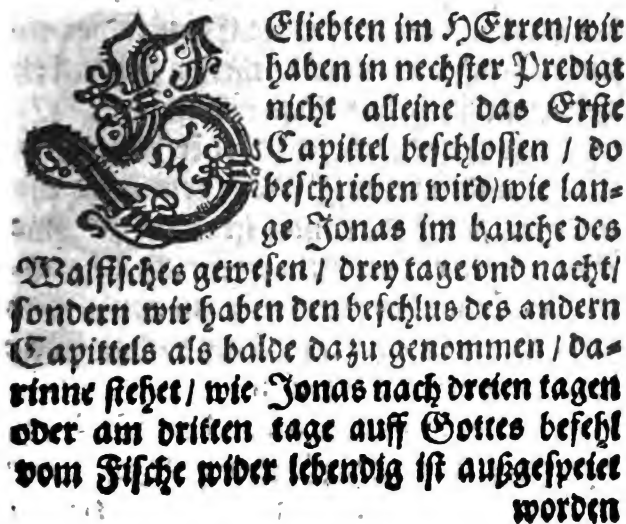 GEliebten im HErren/wir
haben in nechster Predigt
nicht alleine das Erste
Capittel beschlossen / do
beschrieben wird/wie lan=
ge Jonas im bauche des
Walfisches gewesen / drey tage vnd nacht/
sondern wir haben den beschlus des andern
Capittels als balde dazu genommen / da=
rinne stehet / wie Jonas nach dreien tagen
oder am dritten tage auff Gottes befehl
vom Fische wider lebendig ist außgespeiet
worden